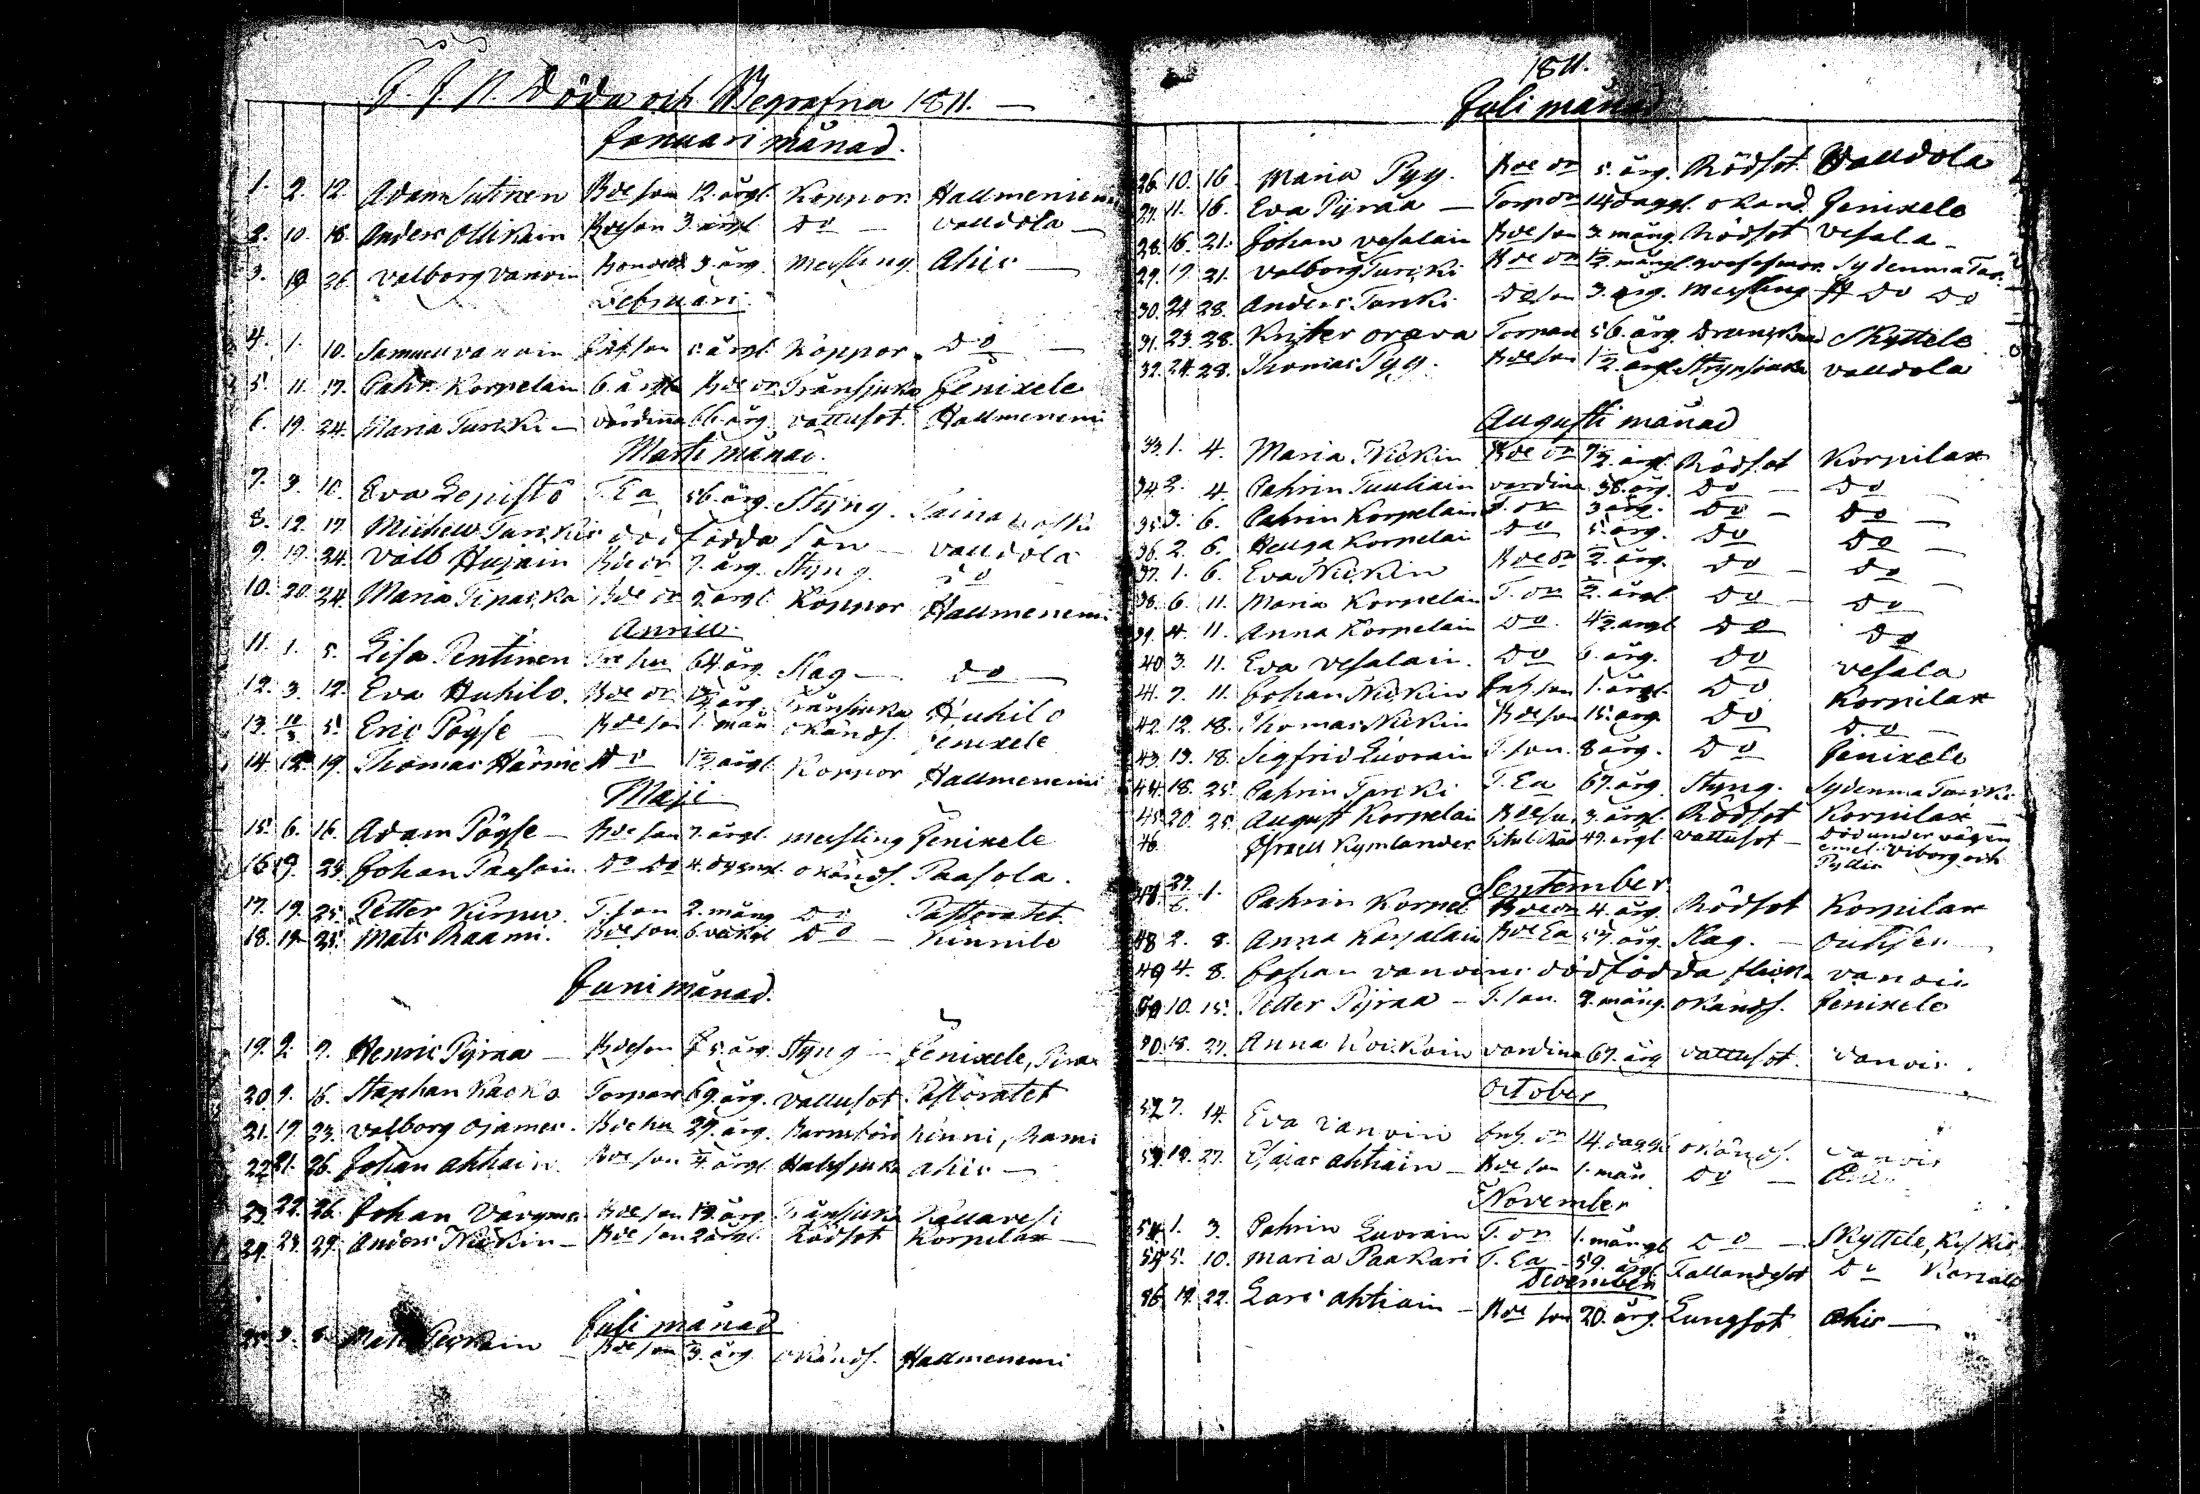 J. J. N. Döda och Begrafna 1811. —
Januari månad.
1. 2. 12. Adam Sutinen Bde son 12. årgl. Koppor Hallmeniemi
2. 10. 18. Anders Ollikain Bdeson 3. årgl. Do — Valldola —
3. 19 26 Valborg Vanoin 3. årg. Messling Ahis —
Februari.
4. 1. 10. Samuel Vanoin Inh. son 5. årgl. Koppor Do —
5. 11. 17. Cahr. Korpelain 6. årgl. Bde dr Trånsjuka Jenixele
6. 19. 24. Maria Turcki — Värdinna 66. årg. Vattusot. Hallmenemi
Marti månad.
7. 3. 10. Eva Lepistö T. Ea 56. årg. Styng.
8. 12. 17. Michell Turckis dödfödda son — Valldola
9. 19. 24. Valb Hujain Bde dr 7. årg. Styng. Do
10. 20. 24. Maria Bde dr 2. årgl. Koppor Hallmenemi
Aprill.
11. 1. 5. Lisa Pentinen 64. årg. Slag — Do —
12. 3. 12. Eva Huhilo. Bde dr årg. Trånsjuka Huhilo
13. 5. Eric Pöyse — Bde son 1. mån okänds. Jenixele
14. 12. 19. Thomas Härmä Do 1½ årgl. Koppor Hallmenemi
Maji
15. 6. 16. Adam Pöyse — Bde son 7. årgl. Messling Jenixele
16. 19. 23. Johan Paasoin Do Do 4. okänds. Paasola.
17. 19. 25. Petter Kirpu. T. son 2. mång Do Pastoratet
18. 19. 25. Mats Raami. Bde son 6. Do — Kinnile
Juni månad.
19. 2. 9. Henric Pyraa — Bdeson 5. årg. Styng — Jenixele,
20. 9. 16. Staphan Kacko Torpare 69. årg. Vattusot Pastoratet
21. 19. 23. Valborg Ojamer. Bde hu 29. årg. Barnsbörd Kinni, Rami
22. 21. 26. Johan Ahtiain Bde son årgl. Halssjuka Ahis —
23. 22. 26. Johan Bde son årg. Trånsjuka
24. 23. 29. Anders Nickin — Bde son 2 årgl. Rödsot Korpilax —
Juli månad
25. 3. 8. Mats Bde son 3. årg. okänds. Hallmenemi
1811.
Juli månad
26. 10. 16. Maria Pyy. Bde dr 5. årg. Rödsot Valldola
27. 11. 16. Eva Pyraa — Torp dr 14 daggl. okänd. Jenixele
28. 16. 21. Johan Vesalain Bde son 3. mång. Rödsot Vesala —
29. 19. 21. Valborg Turcki Bde dr mångl. Sydenma
30. 24 28. Anders Turcki Do son 3. årg. Messling Do Do
31. 23. 28. Krister Orava Torpare 56. årg. Skyttele
32. 24. 28. Thomas Pyy. Bde son årgl. Strypsjuka Valldola
Augusti månad
33. 1. 4. Maria Nickin Bde dr årgl. Rödsot Korpilax
34. 2. 4. Cahrin Tuuliain Värdina 38. årg. Do — Do —
35. 3. 6. Cahrin Korpelain T. dr 3 årg. Do — Do —
36. 2. 6. Hellga Korpelai Do 5. årg. Do Do —
37. 1. 6. Eva Nickin Bde dr årg. Do — Do —
38. 6. 11. Maria Korpelain T. dr årgl. Do — Do
39. 4. 11. Anna Korpelain Do. årgl Do Do
40 3. 11. Eva Vesalain. Do 6. årg. Do Vesala
41. 7. 11. Johan Nickin Inh. son 1. årgl. Do Korpilax
42. 12. 18. Thomas Nickin Bde son 15. årg. Do Do —
43. 13. 18. Sigfrid Luorain T. son. 8 årg. Do Jenixele
44. 18. 25. Cahrin Turcki T. Ea 67. årg Styng. Sydenma Turcki
45. 20. 25. August Korpelain Bdeson 3. årgl. Rödsot Korpilax —
46. Israell Kymlander Titul. Råd 49. årgl Vattusot — Död under vägen emel. Viborg och Pyllis
September.
1. Cahrin Korpel Bde dr 4. årg. Rödsot Korpilax
48 2. 8. Anna Karjalain Bde Ea 57. årg. Slag. —
49 4. 8. Johan Vanoins dödfödda flicka Vanois
10. 15. Petter Pyraa — T. son. 2. mång. okänds. Jenixele
18. 27. Anna Värdina 67. årg Vattusot. Vanois.
October
52 7. 14. Eva Vanoin Inh. dr 14 daggl. okänds. Vanois
19. 27. Esaias Ahtiain — Bde son 1. mån Do —
November
1. 3. Cahrin Luorain T. dr 1. mångl Do — Skyttele,
5. 10. Maria Paakari T. Ea 59. årgl. Fallandesot Do
December
56 19. 22. Lars Ahtiain — Bde son 20. årg. Lungsot Ahis —